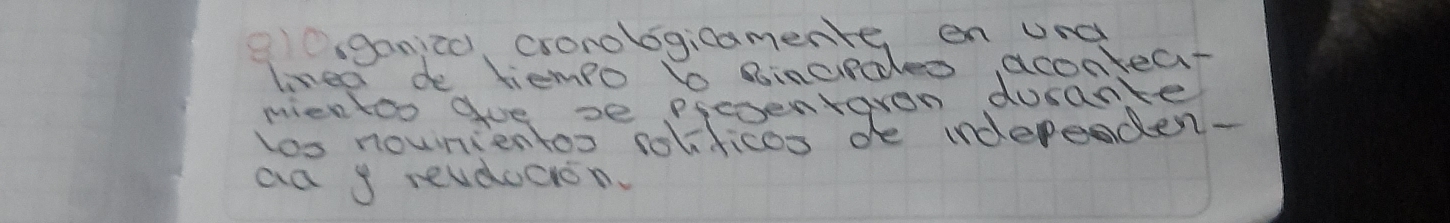 8) Organiza cronológicamente en una
linea de tiempo lo principales aconteci-
mientos que se presentaron durante
los movimientos politicos de independen-
cia y revolución.